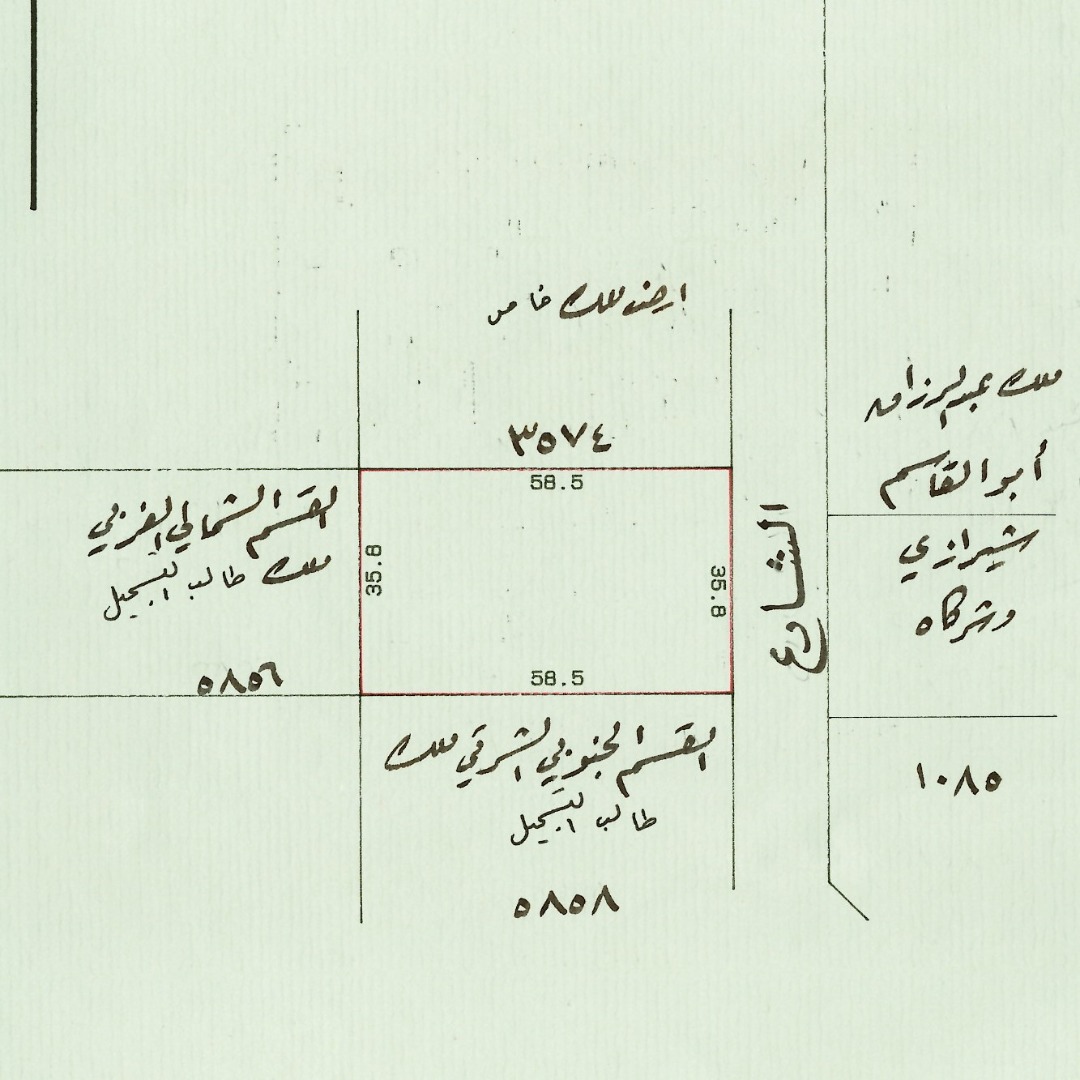 ارض ملك خاص
٣٥٧٤
58.5
35.8
35.8
58.5
القسم الشمالي الغربي
ملك طالب التسجيل
٥٨٥٦
القسم الجنوبي الشرقي ملك
طالب التسجيل
٥٨٥٨
الشارع
ملك عبدالرزاق
أبو القاسم
شيرازي
وشركاه
١٠٨٥